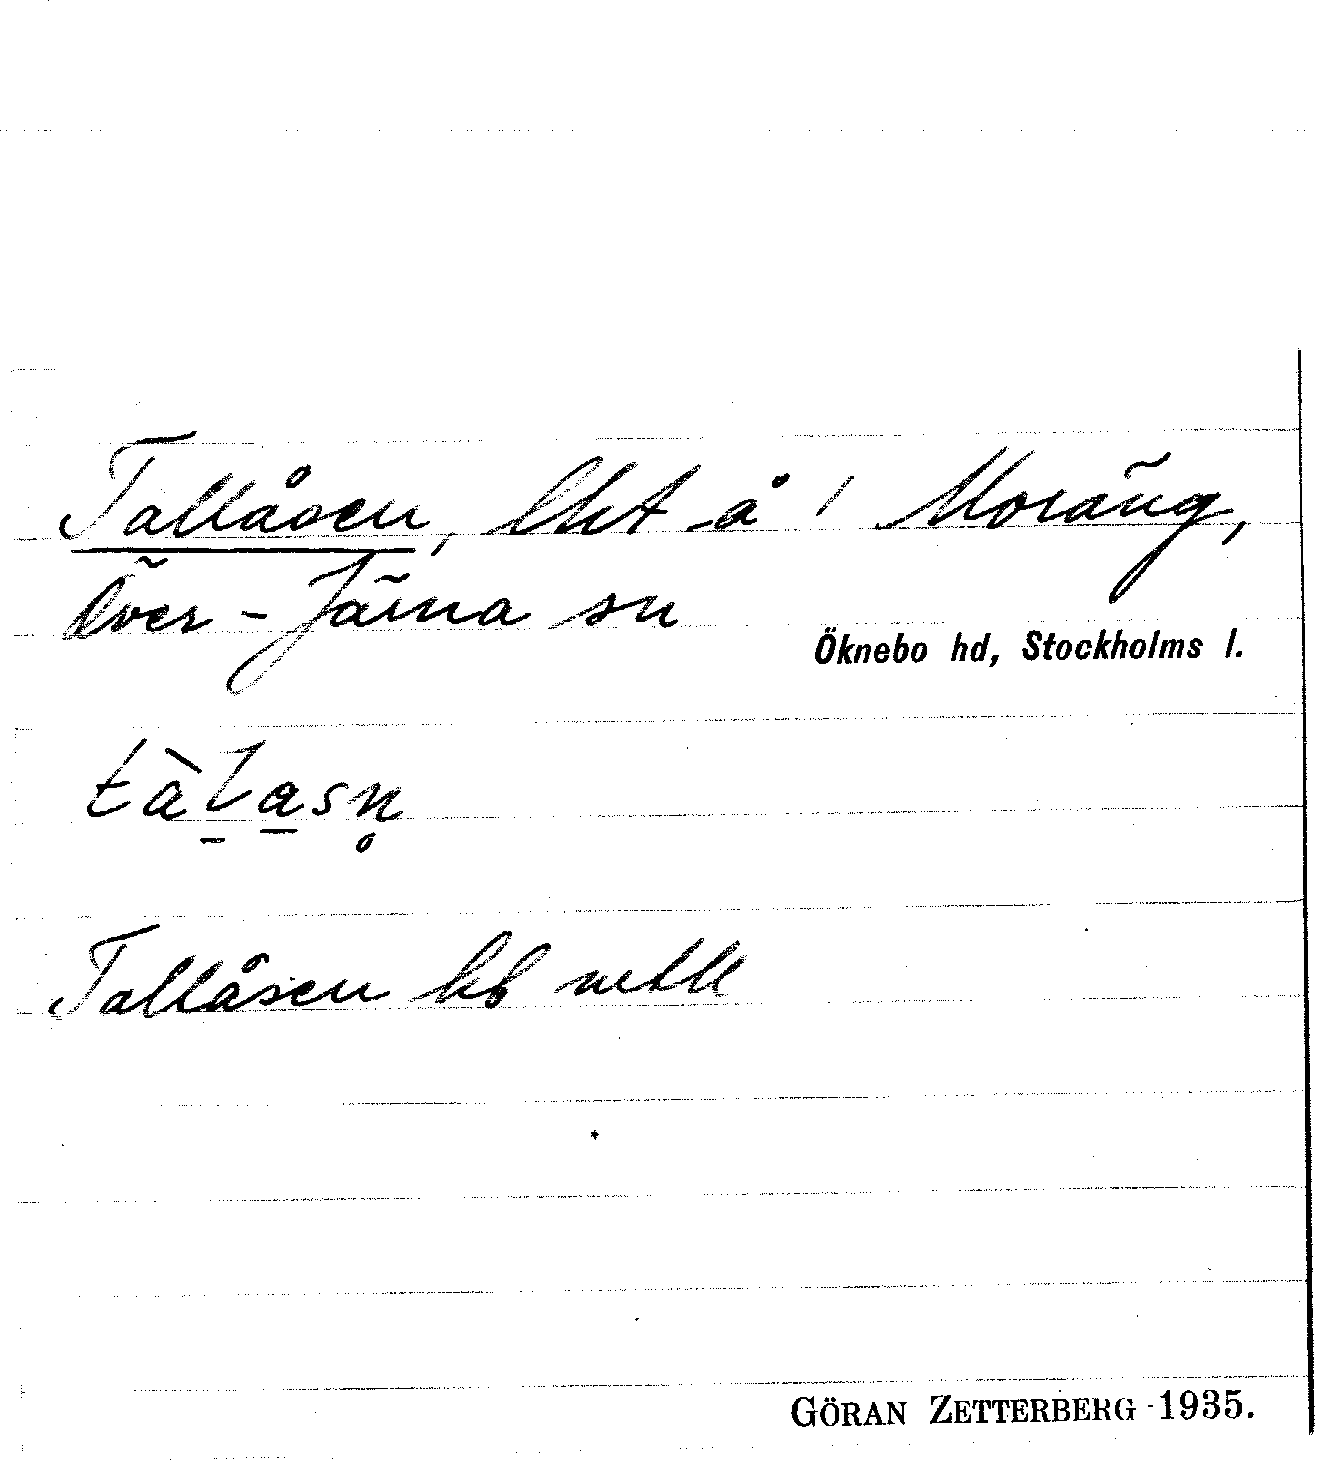 Tallåsen, lht å 1 Moräng,
Över-Järna sn
Öknebo hd, Stockholms l.
tàl̠a̠sn̥
Tallåsen hb
GÖRAN ZETTERBERG 1935.